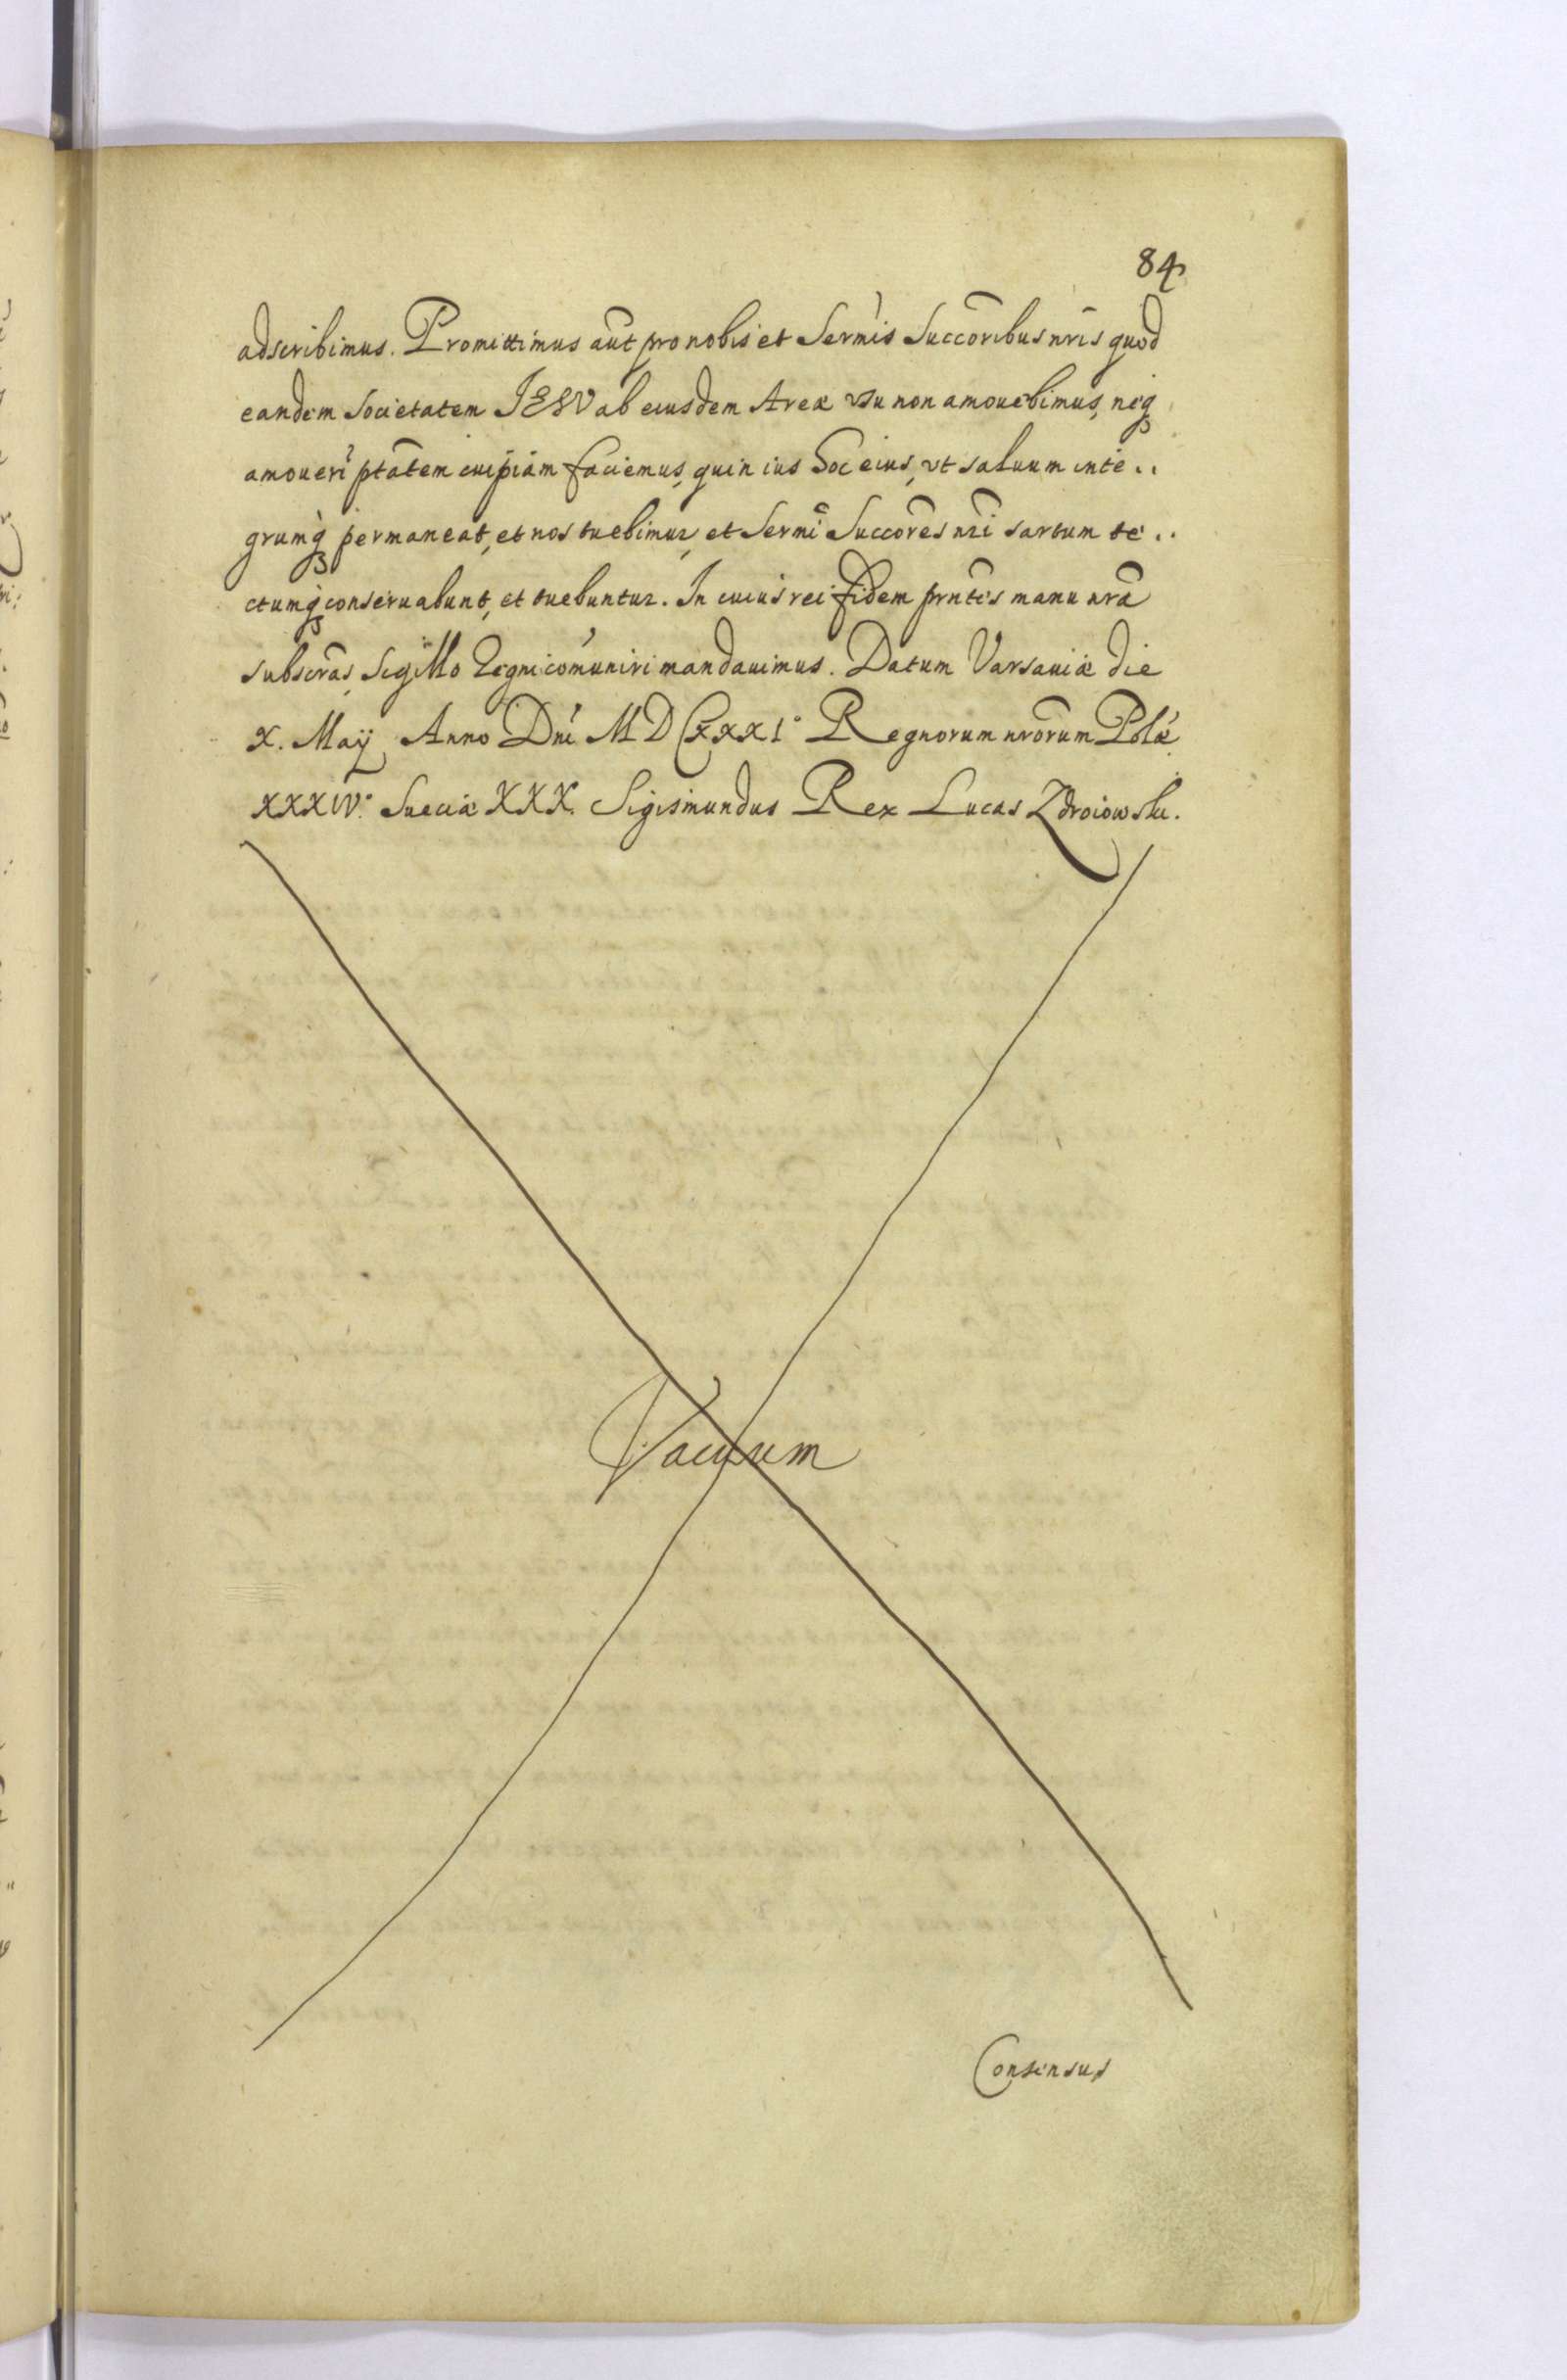 84
adscribimus. Promittimus aut̄ pro nobis et Sermis Succoribus nris quod
eandem Societatem IESV ab eiusdem Areæ vsu non amouebimus, neq
amoueri ptatem cuipiam faciemus, quin ius hoc eius, vt saluum inte..
grumq permaneat, et nos tuebimur, et Sermi Succores nri sartum te..
ctumq conseruabunt, et tuebuntur. In cuius rei fidem prntes manu nra
subscras, sigillo Regni comuniri mandauimus. Datum Varsauiæ die
X. Maÿ Anno Dni MDCXXXI° Regnorum nrorum Polæ
XXXXIV° Sueciæ XXX. Sigismundus Rex Lucas Zdroiowski.
Vacuum
Consensus